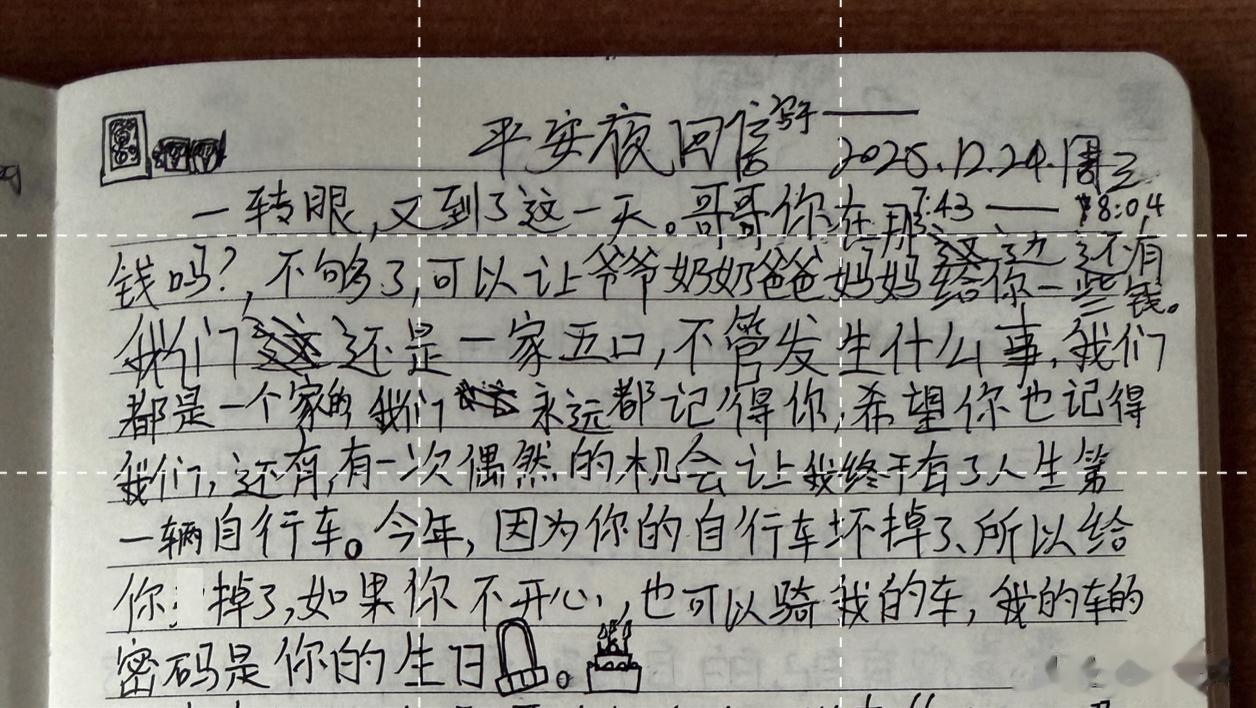 平安夜回信 写于——
2025.12.24.周三
17:43 —— 18:04
一转眼,又到了这一天。哥哥你在那边还有
钱吗?,不够了,可以让爷爷奶奶爸爸妈妈给你一些钱。
我们还是一家五口,不管发生什么事,我们
都是一个家的我们永远都记得你,希望你也记得
我们,还有,有一次偶然的机会让我终于有了人生第
一辆自行车。今年,因为你的自行车坏掉了、所以给
你 掉了,如果你不开心,也可以骑我的车,我的车的
密码是你的生日。